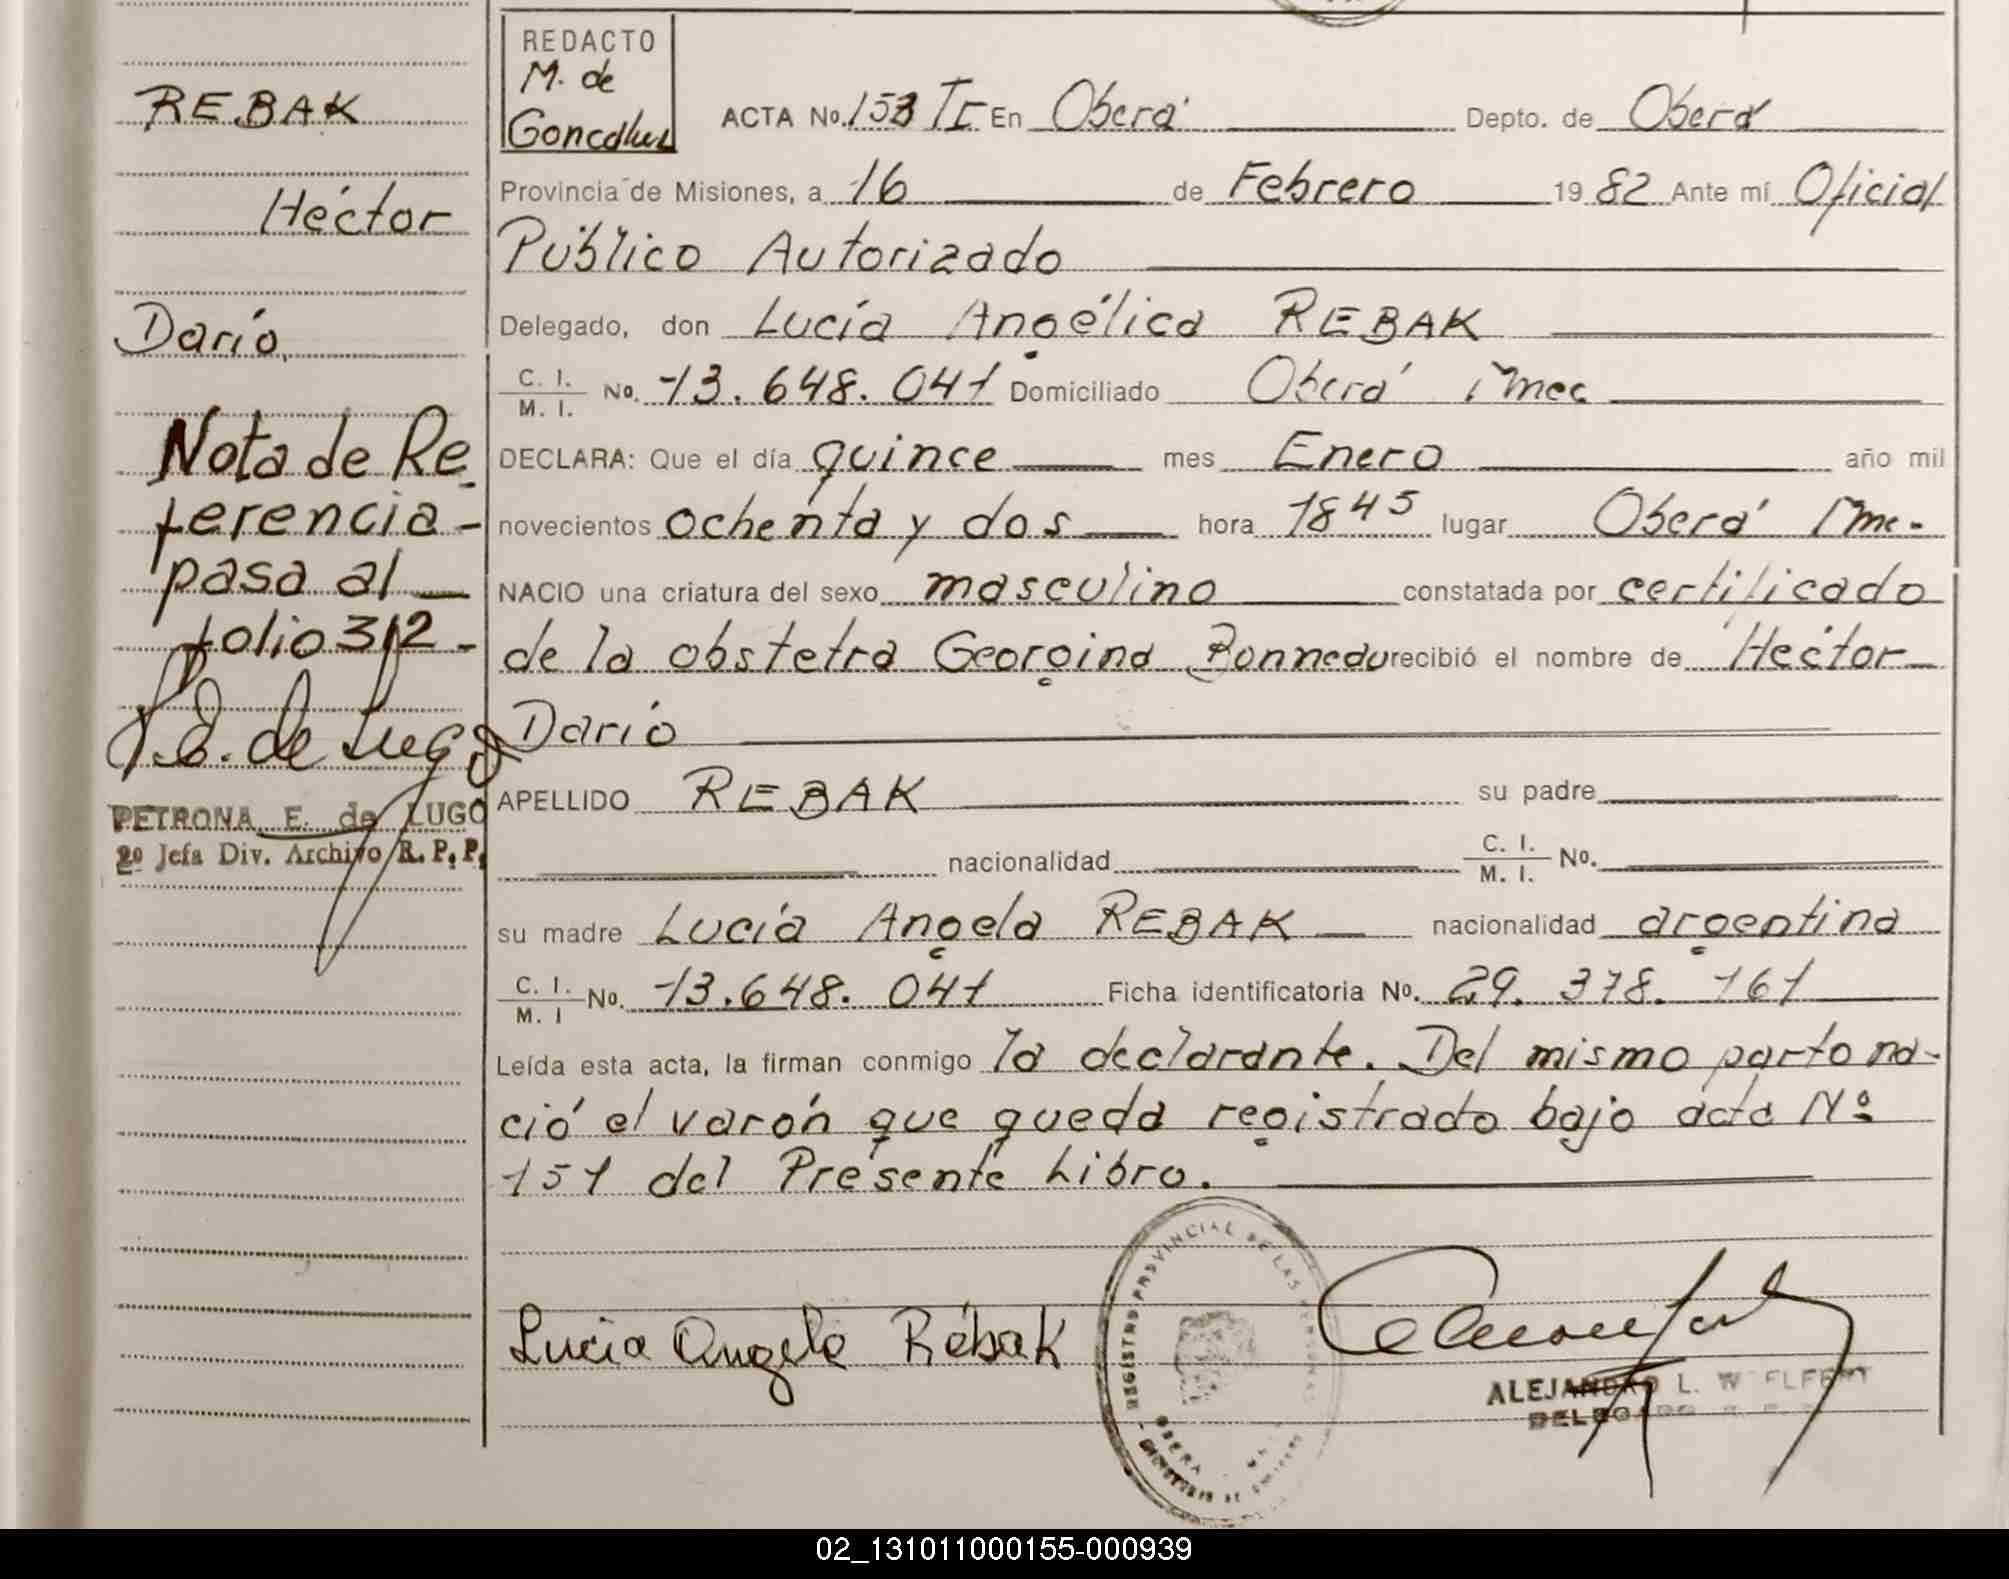 REDACTO
M. de
Goncalves
ACTA No. 153 TI En Oberá Depto. de Oberá
Provincia de Misiones, a 16 de Febrero 19 82 Ante mí Oficial
Público Autorizado
Delegado, don Lucía Angélica REBAK
C. I.
M. I. No. 13.648.041 Domiciliado Oberá
DECLARA: Que el día quince mes Enero año mil
novecientos ochenta y dos hora 1845 lugar Oberá
NACIO una criatura del sexo masculino constatada por certificado
de la obstetra Georgina recibió el nombre de Héctor
Darío
APELLIDO REBAK su padre
nacionalidad C. I.
M. I. No.
su madre Lucía Angela REBAK nacionalidad argentina
C. I.
M. I No. 13.648.041 Ficha identificatoria No. 29.378.161
Leída esta acta, la firman conmigo la declarante. Del mismo parto na-
ció el varón que queda registrado bajo acta Nº
151 del Presente Libro.
Lucia Angela Rebak
REGISTRO PROVINCIAL DE LAS PERSONAS
OBERA
ALEJANDRO L. WELFERT
DELEGADO
REBAK
Héctor
Darío
Nota de Re
ferencia-
pasa al
folio 312-
P. E. de Lugo
PETRONA E. de LUGO
2º Jefa Div. Archivo R. P. P.
02_131011000155-000939